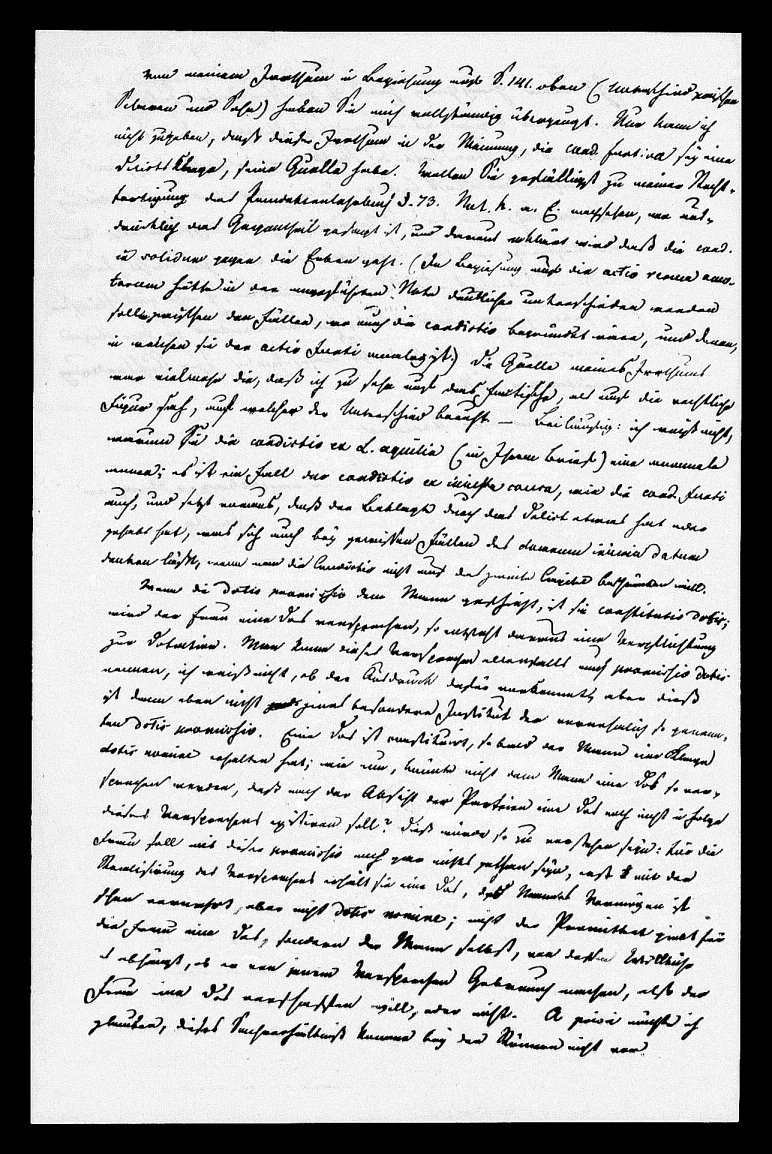 von meinem Irrthum in Beziehung auf S. 141. oben (Unterschied zwischen
Sclaven und Sohn) haben Sie mich vollständig überzeugt. Nur kann ich
nicht zugeben, daß dieser Irrthum in der Meinung, die cond. furtiva sey eine
Delicts Klage, seine Quelle habe. Wollen Sie gefälligst zu meiner Recht-
fertigung das Pandektenlehrbuch S. 73. Not. h. a. E. nachsehen, wo aus-
drücklich das Gegentheil gesagt ist, und daraus erklärt wird daß die cond.
in solidum gegen die Erben geht. (In Beziehung auf die actio rerum amo-
tarum hätte in der angeführten Note deutlicher unterschieden werden
sollen zwischen den Fällen, wo auch die condictio begründet wäre, und denen,
in welchen sie der actio furti analog ist.) Die Quelle meines Irrthums
war vielmehr die, daß ich zu sehr auf das factische, als auf die rechtliche
Figur sah, auf welcher der Unterschied beruht. — Beiläufig: ich weiß nicht,
warum Sie die condictio ex L. aquilia (in Ihrem Brief) eine anomale
nennen; es ist ein Fall der condictio ex iniusta causa, wie die cond. furti
auch, und setzt voraus, daß der Beklagte durch das Delict etwas hat oder
gehabt hat, was sich auch bey gewissen Fällen des damnum iniuria datum
denken läßt, wenn man die Condictio nicht auf das zweite Capitel beschränken will.
Wenn die dotis promissio dem Mann geschieht, ist sie constitutio dotis;
wird der Frau eine Dos versprochen, so entsteht daraus eine Verpflichtung
zur Dotation. Man kann dieses Versprechen allenfalls auch promissio dotis
nennen, ich weiß nicht, ob der Ausdruck dafür vorkommt, aber dieß
ist dann eben nicht jenes besondere Institut der vornehmlich so genann-
ten dotis promissio. Eine Dos ist constituirt, sobald der Mann eine Klage
dotis nomine erhalten hat; wie nun, könnte nicht dem Mann eine Dos so ver-
sprochen werden, daß nach der Absicht der Parteien eine Dos noch nicht in Folge
dieses Versprechens existiren soll? Dieß würde so zu verstehen seyn: für die
Frau soll mit dieser promissio noch gar nichts gethan seyn, erst mit der
Realisirung des Versprechens erhält sie eine Dos, des Mannes Vermögen ist
schon vermehrt, aber nicht dotis nomine; nicht der Promittent giebt für
die Frau eine Dos, sondern der Mann selbst, von dessen Willkühr
es abhängt, ob er von jenem Versprechen Gebrauch machen, also der
Frau eine Dos verschaffen will, oder nicht. A priori möchte ich
glauben, dieses Sachverhältniß komme bey den Römern nicht vor.